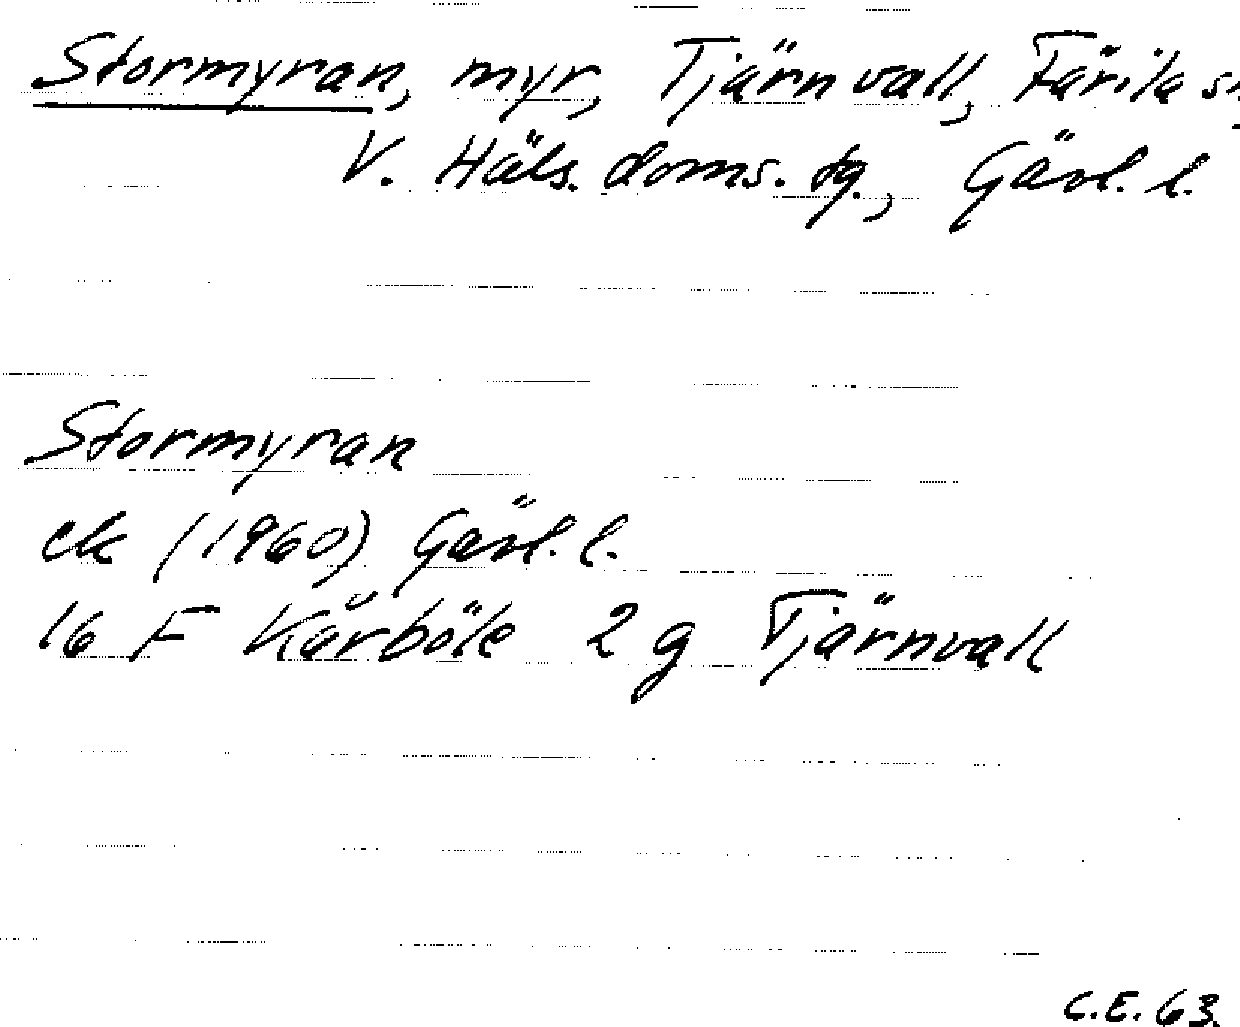 Stormyran, myr, Tjärnvall, Färila sn,
V. Häls. doms. tg., Gävl. l.
Stormyran
ek (1960) Gävl. l.
16 F Kårböle 2 g Tjärnvall
C.E. 63.